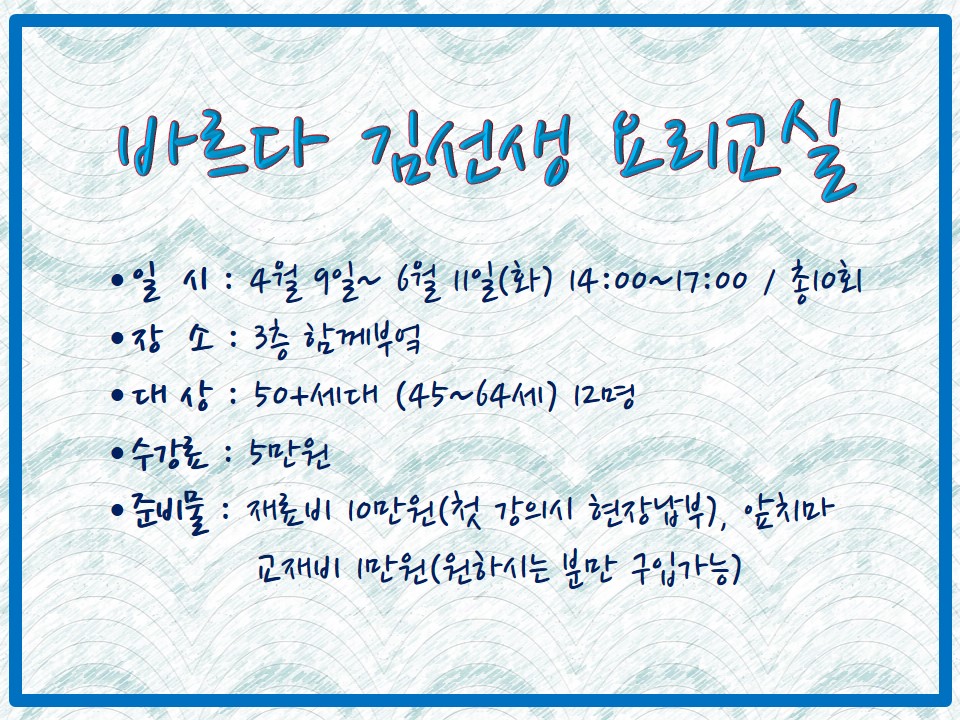 바르다 김선생 요리교실
•일 시 : 4월 9일~ 6월 11일(화) 14:00~17:00 / 총10회
•장 소 : 3층 함께부엌
•대 상 : 50+세대 (45~64세) 12명
•수강료 : 5만원
•준비물 : 재료비 10만원(첫 강의시 현장납부), 앞치마
교재비 1만원(원하시는 분만 구입가능)